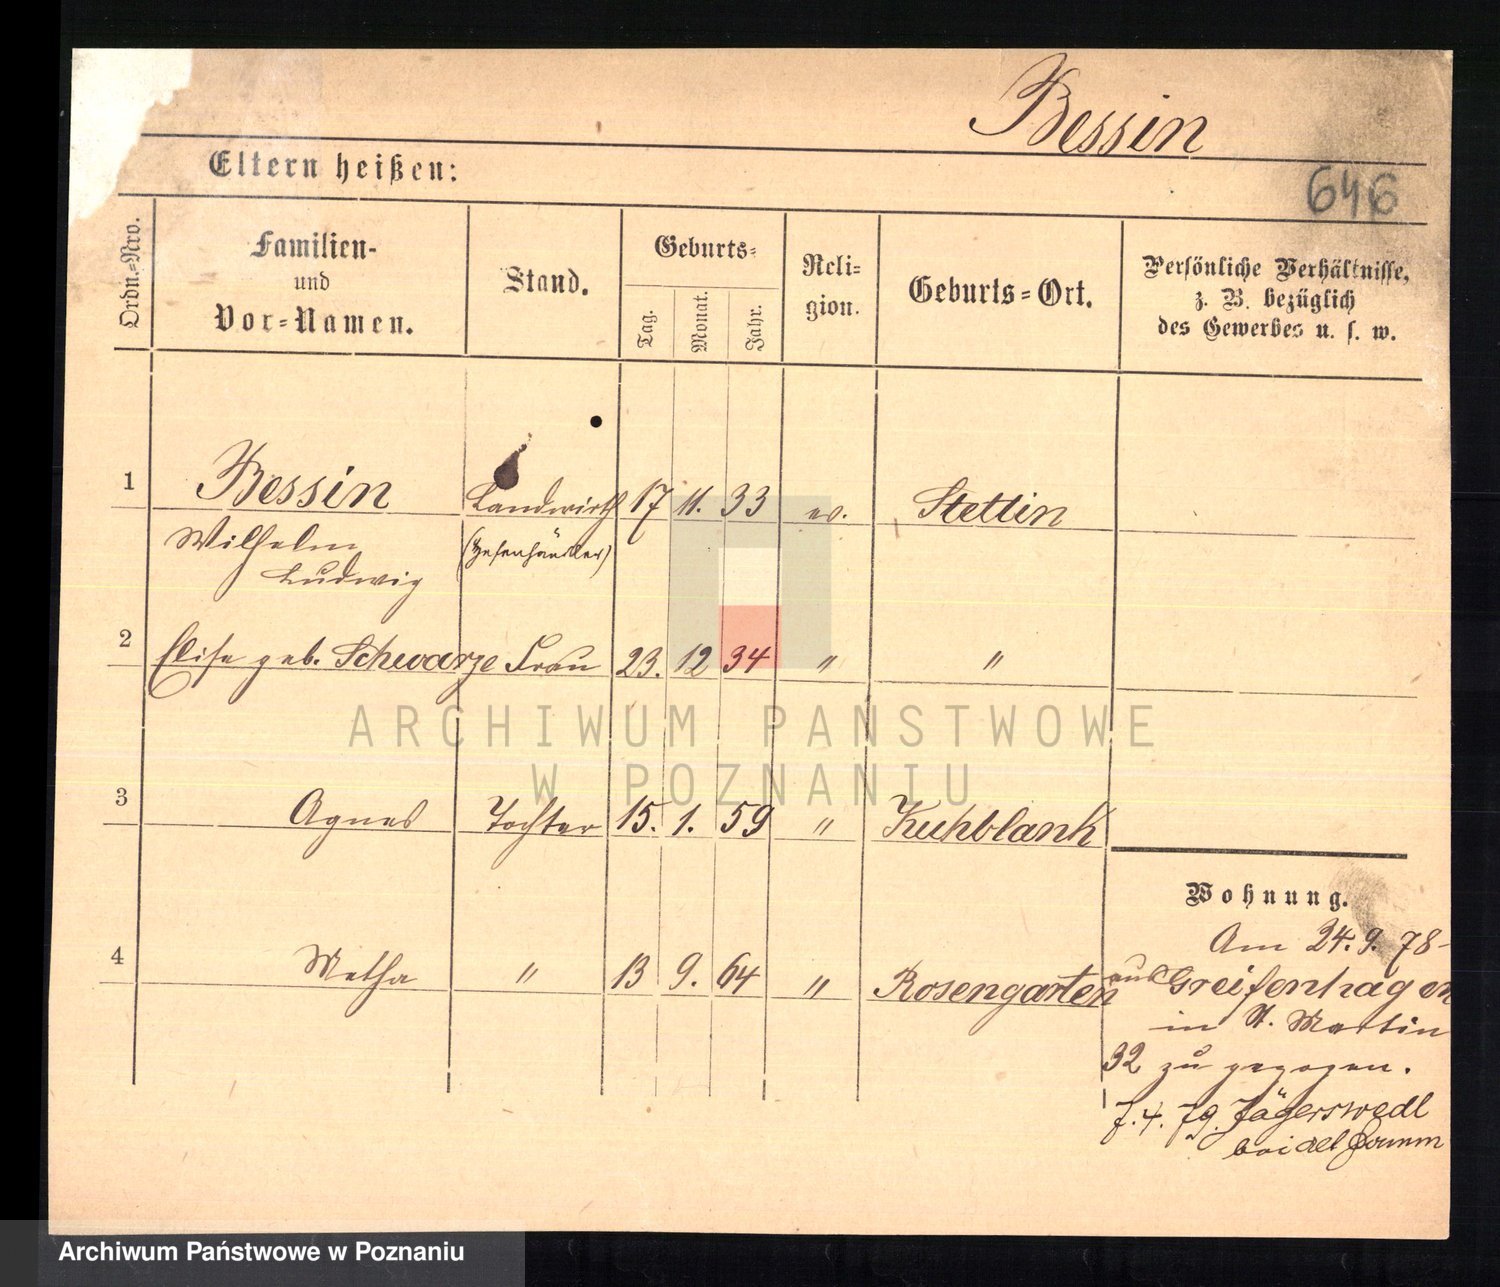 Bessin
Eltern heißen:
646
Ordn.-Nro.
Familien-
und
Vor-Namen.
Stand.
Geburts-
Tag.
Monat.
Jahr.
Reli-
gion.
Geburts-Ort.
Persönliche Verhältnisse,
z. B. bezüglich
des Gewerbes u. s. w.
1 Bessin Landwirth 17 11. 33 ev. Stettin
Wilhelm (Hefenhändler)
Ludwig
2 Elise geb. Schwarze Frau 23. 12 34 " "
ARCHIWUM PAŃSTWOWE
W POZNANIU
3 Agnes Tochter 15. 1. 59 " Kuhblank
Wohnung.
4 Metha " 13 9. 64 " Rosengarten
Am 24. 9. 78
aus Greifenhagen
in St. Martin
32 zu gezogen.
Jägerswedl
bei
Archiwum Państwowe w Poznaniu